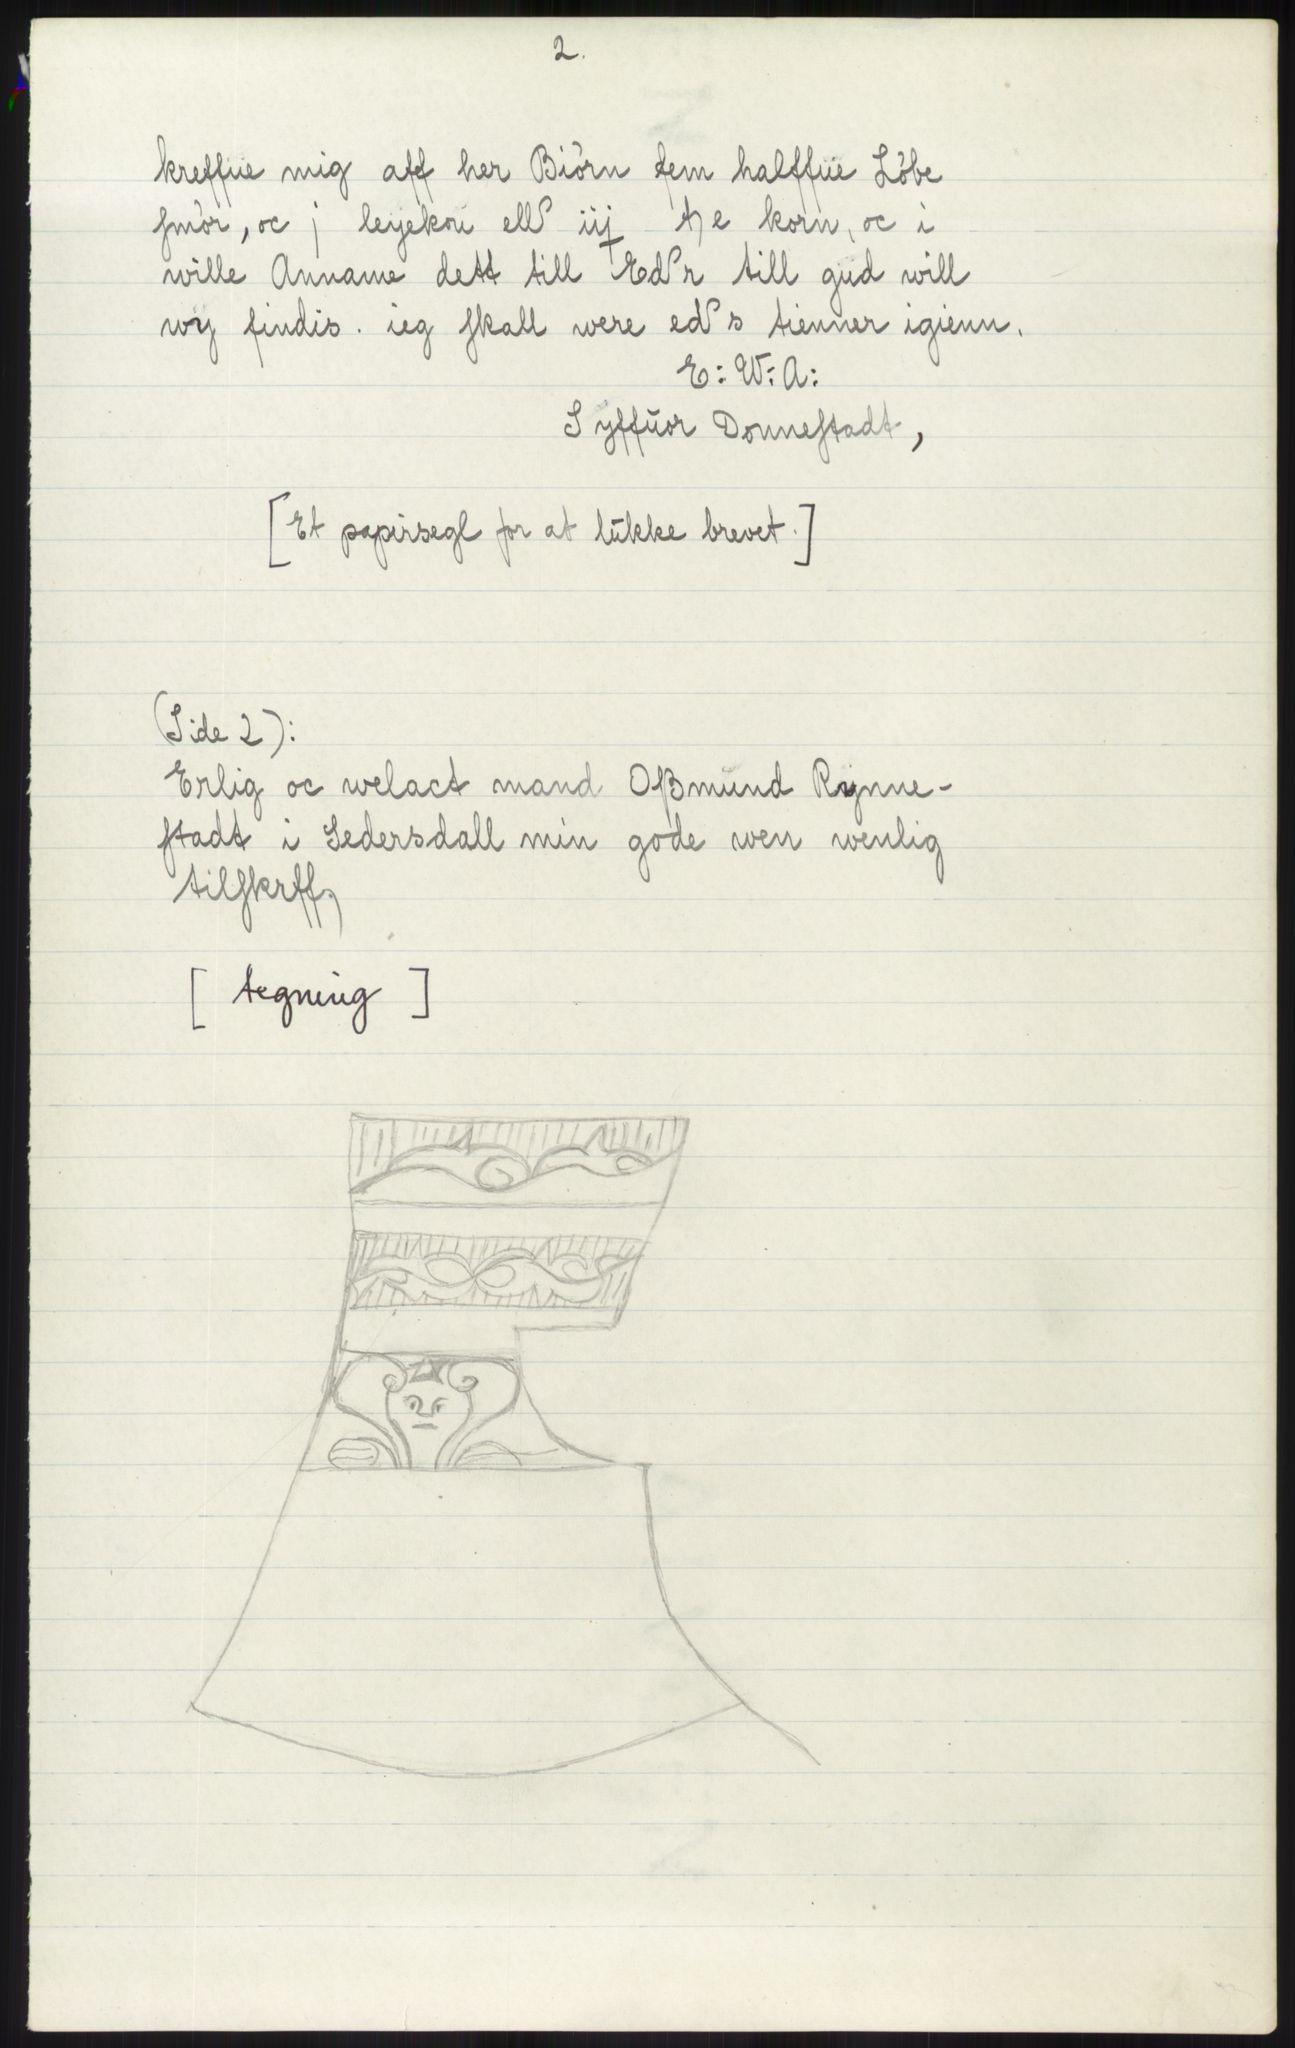 2.
kreffue mig aff her Biörn fem halffüe Löbe
smör, oc j leyekoü ell iij e korn, oc i
wille Anname dett till Edr till gud will
wy findis. ieg skall were eds tienner igienn.
E: W: A:
Syffüor Donnestadt,
[Et papirsegl for at lükke brevet.]
(Side 2):
Erlig oc welact mand Oßmünd Rynne-
stadt i Sedersdall min gode wen wenlig
tilskrff,
[tegning]